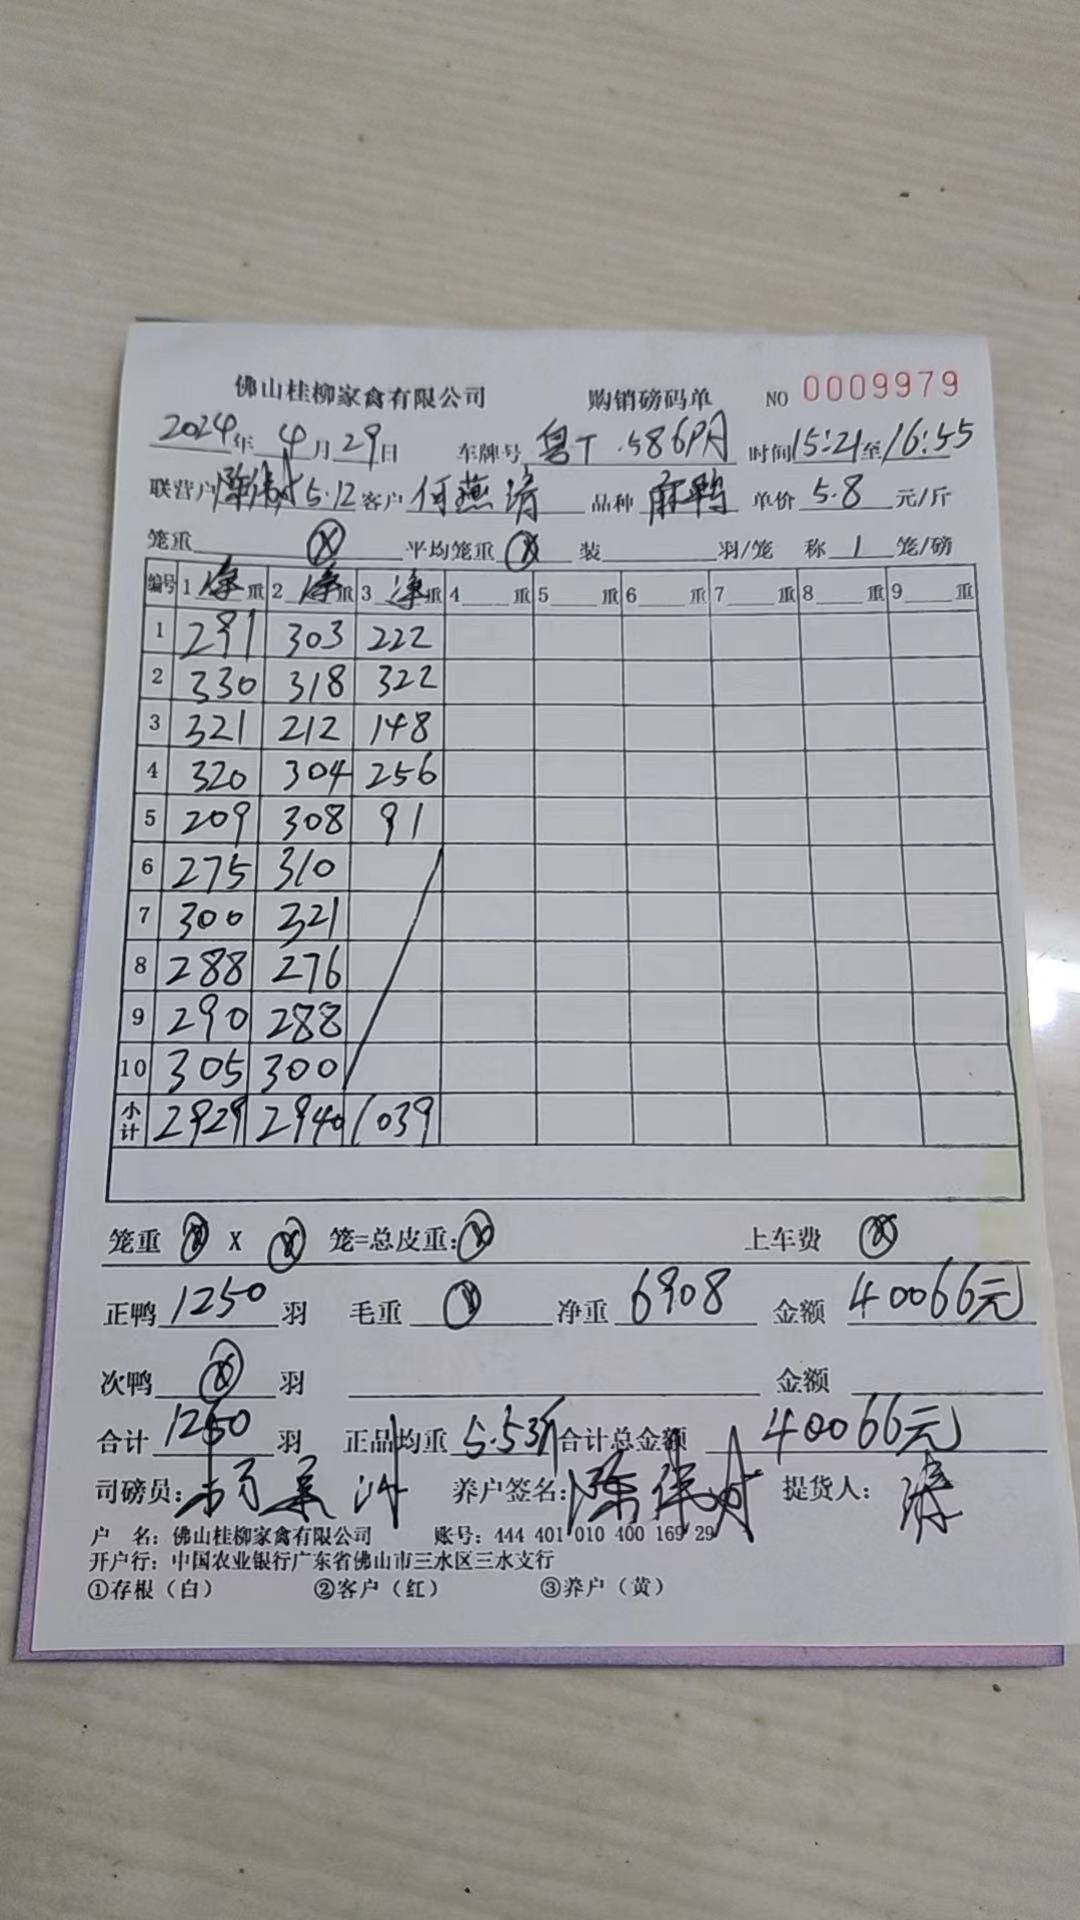 佛山桂柳家禽有限公司 购销磅码单 NO 0009979
2024年 4月29日 车牌号 粤T.586PA 时间15:21至16:55
联营户 陈伟成5.12 客户 何燕清 品种 麻鸭 单价 5.8 元/斤
笼重 ⓧ 平均笼重 ⓧ 装 羽/笼 称 1 笼/磅
编号 1 净 重 2 净 重 3 净 重 4 重 5 重 6 重 7 重 8 重 9 重
1 291 303 222
2 330 318 322
3 321 212 148
4 320 304 256
5 209 308 91
6 275 310
7 300 321
8 288 276
9 290 288
10 305 300
小计 2929 2940 1039
笼重 ⓧ X ⓧ 笼=总皮重: ⓧ 上车费 ⓧ
正鸭 1250 羽 毛重 ⓧ 净重 6908 金额 40066元
次鸭 ⓧ 羽 金额
合计 1250 羽 正品均重 5.53斤 合计总金额 40066元
司磅员: 养户签名: 陈 提货人: 清
户 名: 佛山桂柳家禽有限公司 账号: 444 401 010 400 169 29
开户行: 中国农业银行广东省佛山市三水区三水支行
①存根(白) ②客户(红) ③养户(黄)